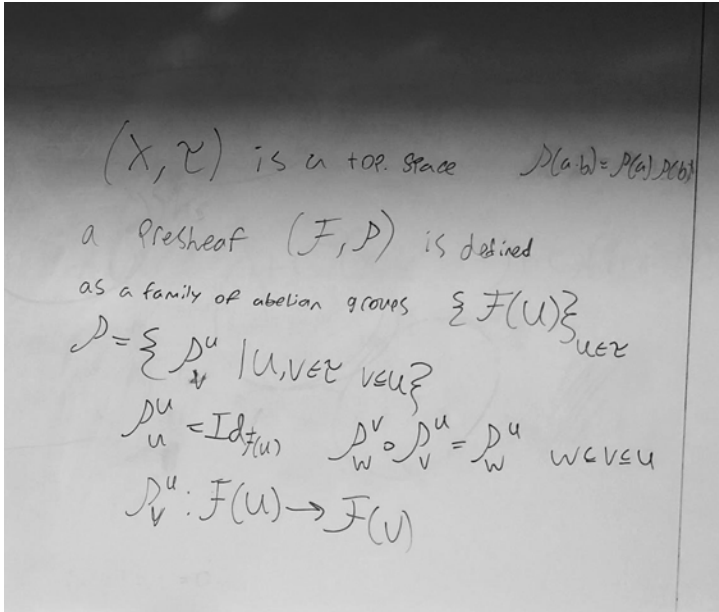 (X, τ) is a top. space ρ(a·b)=ρ(a)ρ(b)
a Presheaf (F, ρ) is defined
as a family of abelian groups {F(U)}_{U∈τ}
ρ = {ρ^U_V | U,V∈τ V⊆U}
ρ^U_U = Id_{F(U)} ρ^V_W ∘ ρ^U_V = ρ^U_W W⊆V⊆U
ρ^U_V : F(U) → F(V)